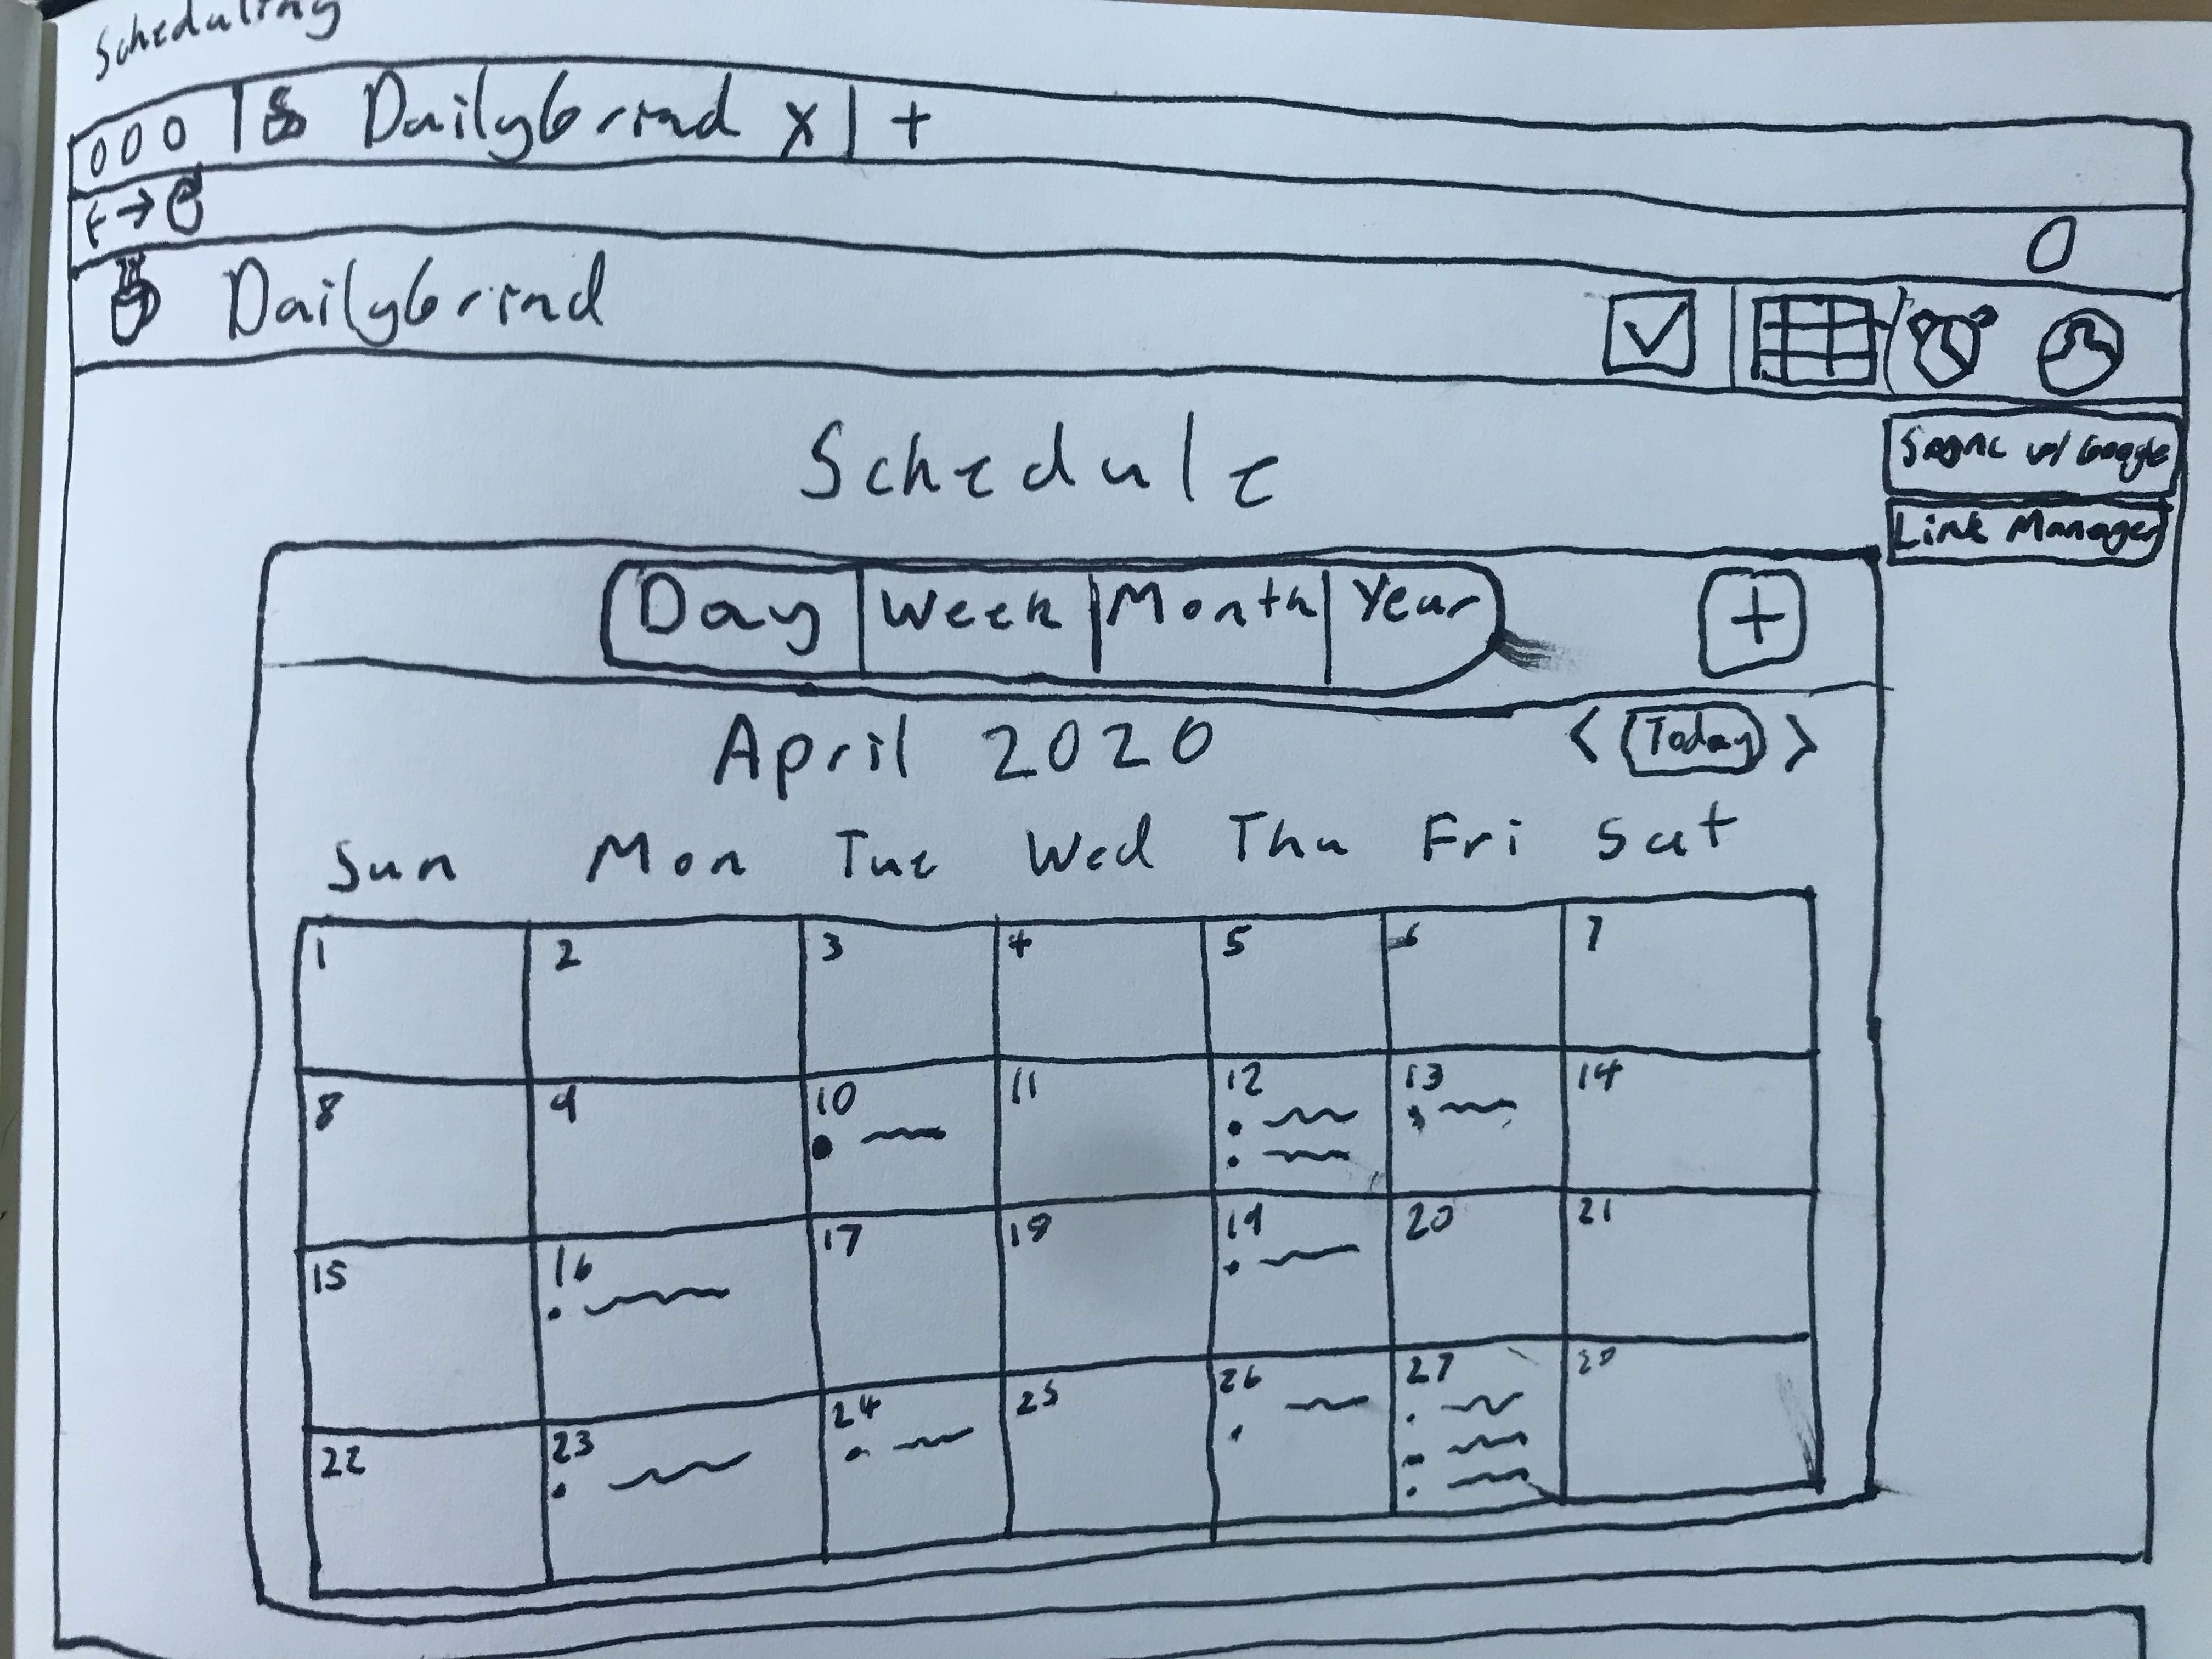 Scheduling
DailyGrind X | +
DailyGrind
Schedule
Ssync w/ Google
Link Manager
Day Week Month Year +
April 2020 < Today >
Sun Mon Tue Wed Thu Fri Sat
1 2 3 4 5 6 7
8 9 10 11 12 13 14
15 16 17 19 19 20 21
22 23 24 25 26 27